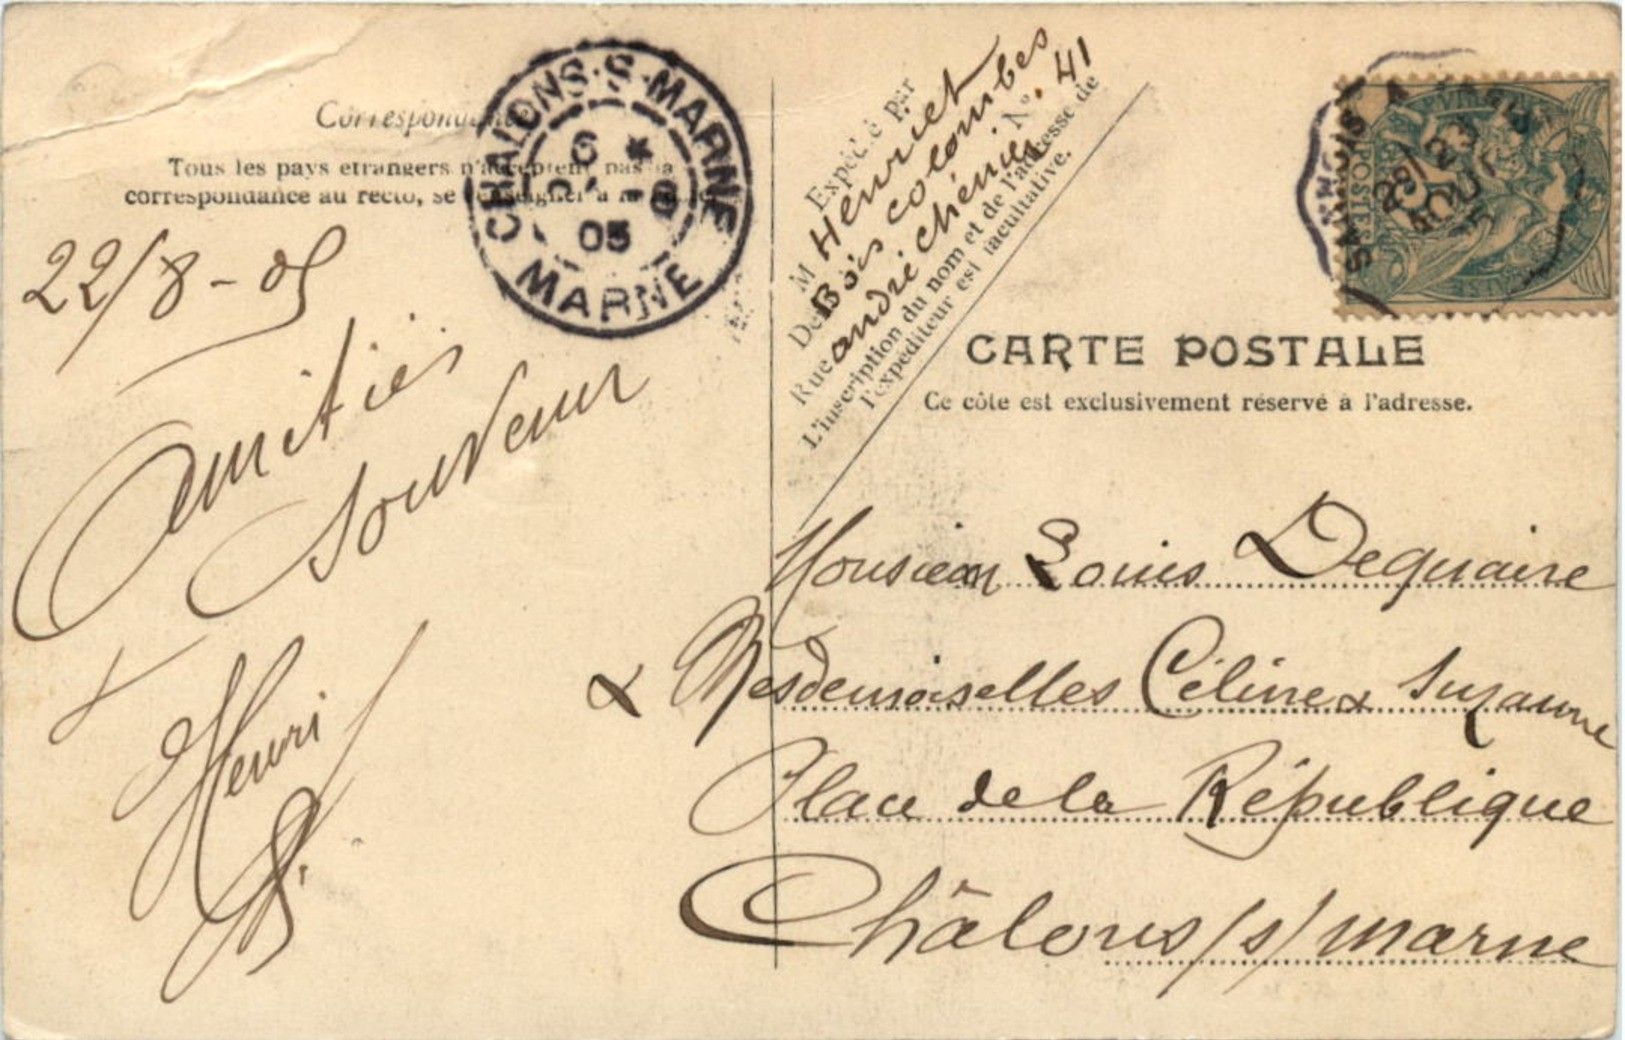 Correspondance
Tous les pays etrangers n'acceptent pas la
correspondance au recto, se renseigner à la
22/8-05
Amitiés
Souvenir
Henri
CHALONS-S-MARNE
6
05
MARNE
Expédié par
M Henriet
De Bois colombes
Rue andré chénier N° 41
L'inscription du nom et de l'adresse de
l'expéditeur est facultative.
SANNOIS A
23
AOUT
05
CARTE POSTALE
Ce côte est exclusivement réservé à l'adresse.
Monsieur Louis Dequaire
& Mesdemoiselles Céline & Suzanne
Place de la République
Châlons/s/marne